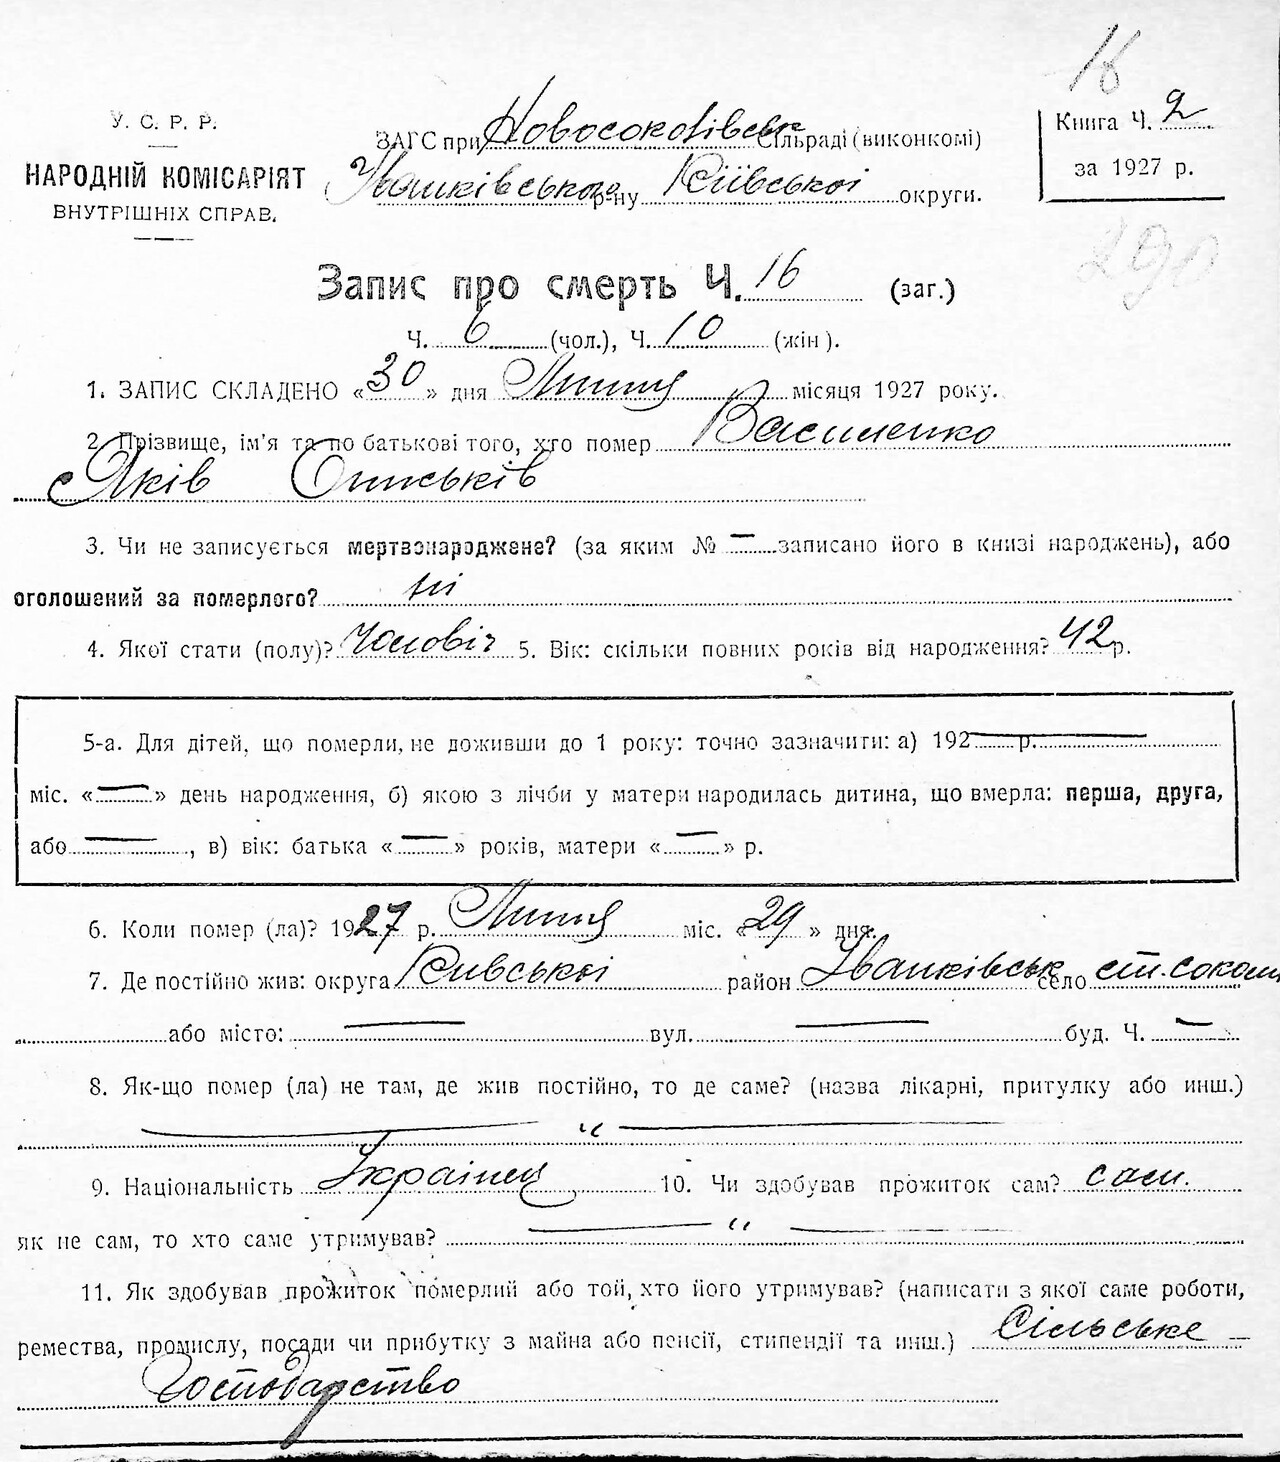 16
У. С. Р. Р.
НАРОДНІЙ КОМІСАРІЯТ
ВНУТРІШНІХ СПРАВ.
ЗАГС при Новосоколівськ Сільраді (виконкомі)
Іванківського р-ну Київської округи.
Книга Ч. 2
за 1927 р.
290
Запис про смерть Ч. 16 (заг.)
Ч. 6 (чол.), Ч. 10 (жін).
1. ЗАПИС СКЛАДЕНО «30» дня Липня місяця 1927 року.
2. Прізвище, ім'я та по батькові того, хто помер Василенко
Яків
3. Чи не записується мертвонароджене? (за яким № — записано його в книзі народжень), або
оголошений за померлого? ні
4. Якої стати (полу)? Чоловіч 5. Вік: скільки повних років від народження? 42 р.
5-а. Для дітей, що померли, не доживши до 1 року: точно зазначити: а) 192 — р. —
міс. « — » день народження, б) якою з лічби у матери народилась дитина, що вмерла: перша, друга,
або — , в) вік: батька « — » років, матери « — » р.
6. Коли помер (ла)? 1927 р. Липня міс. «29» дня.
7. Де постійно жив: округа Київської район Іванківськ село ст. сокол
або місто: — вул. — буд. Ч. —
8. Як-що помер (ла) не там, де жив постійно, то де саме? (назва лікарні, притулку або инш.)
— „ —
9. Національність Українец 10. Чи здобував прожиток сам? сам.
як не сам, то хто саме утримував? — „ —
11. Як здобував прожиток померлий або той, хто його утримував? (написати з якої саме роботи,
ремества, промислу, посади чи прибутку з майна або пенсії, стипендії та инш.) Сільське
Господарство